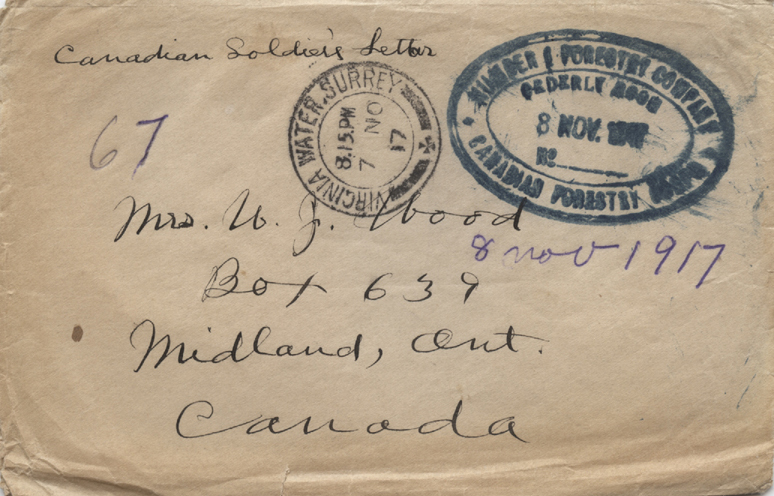 Canadian Soldier's Letter
VIRGINIA WATER, SURREY
8.15 PM
7 NO
17
NUMBER 1 FORESTRY COMPANY
8 NOV. 1917
No
CANADIAN FORESTRY CORPS
67
Mrs. W. J. Wood
8 nov 1917
Box 639
Midland, Ont.
Canada